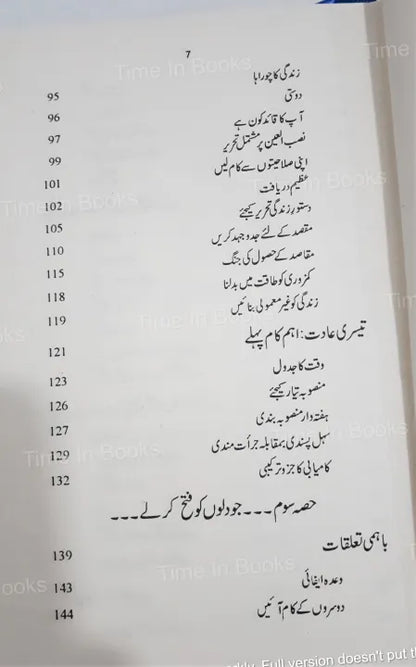 7
Time In Books
Time
زندگی کا چوراہا 95
دوستی 96
آپ کا قائد کون ہے 97
نصب العین پر مشتمل تحریر 99
اپنی صلاحیتوں سے کام لیں 101
Time In Books
Books
عظیم دریافت 102
دستور زندگی تحریر کیجئے 105
مقصد کے لئے جدوجہد کریں 110
مقاصد کے حصول کی جنگ 115
کمزوری کو طاقت میں بدلنا 118
زندگی کو غیر معمولی بنائیں 119
Time In Books
تیسری عادت: اہم کام پہلے 121
وقت کا جدول 123
منصوبہ تیار کیجئے 126
ہفتہ وار منصوبہ بندی 127
سہل پسندی بمقابلہ جرأت مندی 129
Time In Books
Books
کامیابی کا جزو ترکیبی 132
حصہ سوم۔۔۔جو دلوں کو فتح کر لے۔۔۔
باہمی تعلقات 139
Time In Books
ooks
وعدہ ایفائی 143
دوسروں کے کام آئیں 144
Full version doesn't put